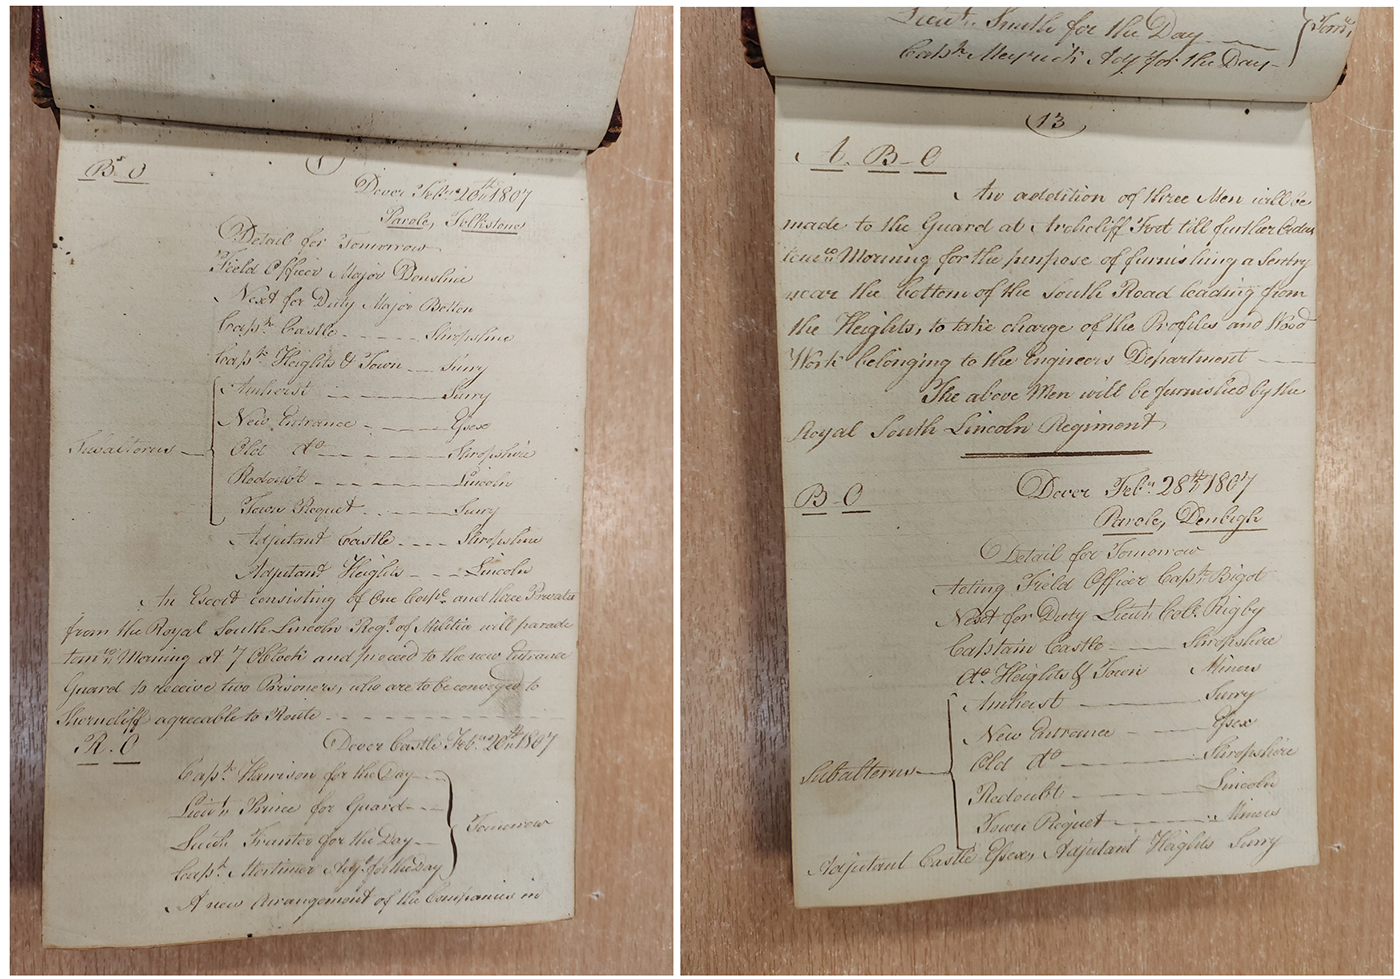 1
B. O
Dover Feby. 20th 1807
Parole, Folkstone
Detail for Tomorrow
Field Officer Major Denshire
Next for Duty Major Bolton
Captn. Castle - - - - - Shropshire
Captn. Heights & Town - - - Surry
Amherst - - - - - - Surry
New Entrance - - - - - Essex
Subalterns - Old do - - - - - - - - Shropshire
Redoubt - - - - - - - Lincoln
Town Piquet - - - - - Surry
Adjutant Castle - - - - Shropshire
Adjutant Heights - - - Lincoln
An Escort consisting of One Corpl. and three Privates
from the Royal South Lincoln Regt. of Militia will parade
tomw. Morning at 7 OClock and proceed to the new Entrance
Guard to receive two Prisoners, who are to be conveyed to
Shorncliff agreeable to Route - - - - - - - -
R. O
Dover Castle Feby. 20th 1807
Captn. Harrison for the Day - - -
Lieutn. Prince for Guard - - -
Lieutn. for the Day - - Tomorrow
Captn. Mortimer Adjt. for the Day
A new Arrangement of the Companies in
Lieutn. Smith for the Day - - -
Captn. Meyrick Adjt. for the Day - Tomw.
13
A. B - O
An addition of three Men will be
made to the Guard at Archcliff Fort till further Orders
tomw. Morning for the purpose of furnishing a Sentry
near the bottom of the South Road leading from
the Heights, to take charge of the Profiles and Wood
Work belonging to the Engineers Department - - -
The above Men will be furnished by the
Royal South Lincoln Regiment,
B - O
Dover Feby. 28th 1807
Parole, Denbigh
Detail for Tomorrow
Acting Field Officer Captn. Bigot
Next for Duty Lieutn. Coll. Rigby
Captain Castle - - - - - Shropshire
do Heights & Town Miners
Amherst - - - - - - Surry
New Entrance - - - - - Essex
Old do - - - - - - - Shropshire
Subalterns -
Redoubt - - - - - - - Lincoln
Town Piquet - - - - - Miners
Adjutant Castle Essex, Adjutant Heights Surry